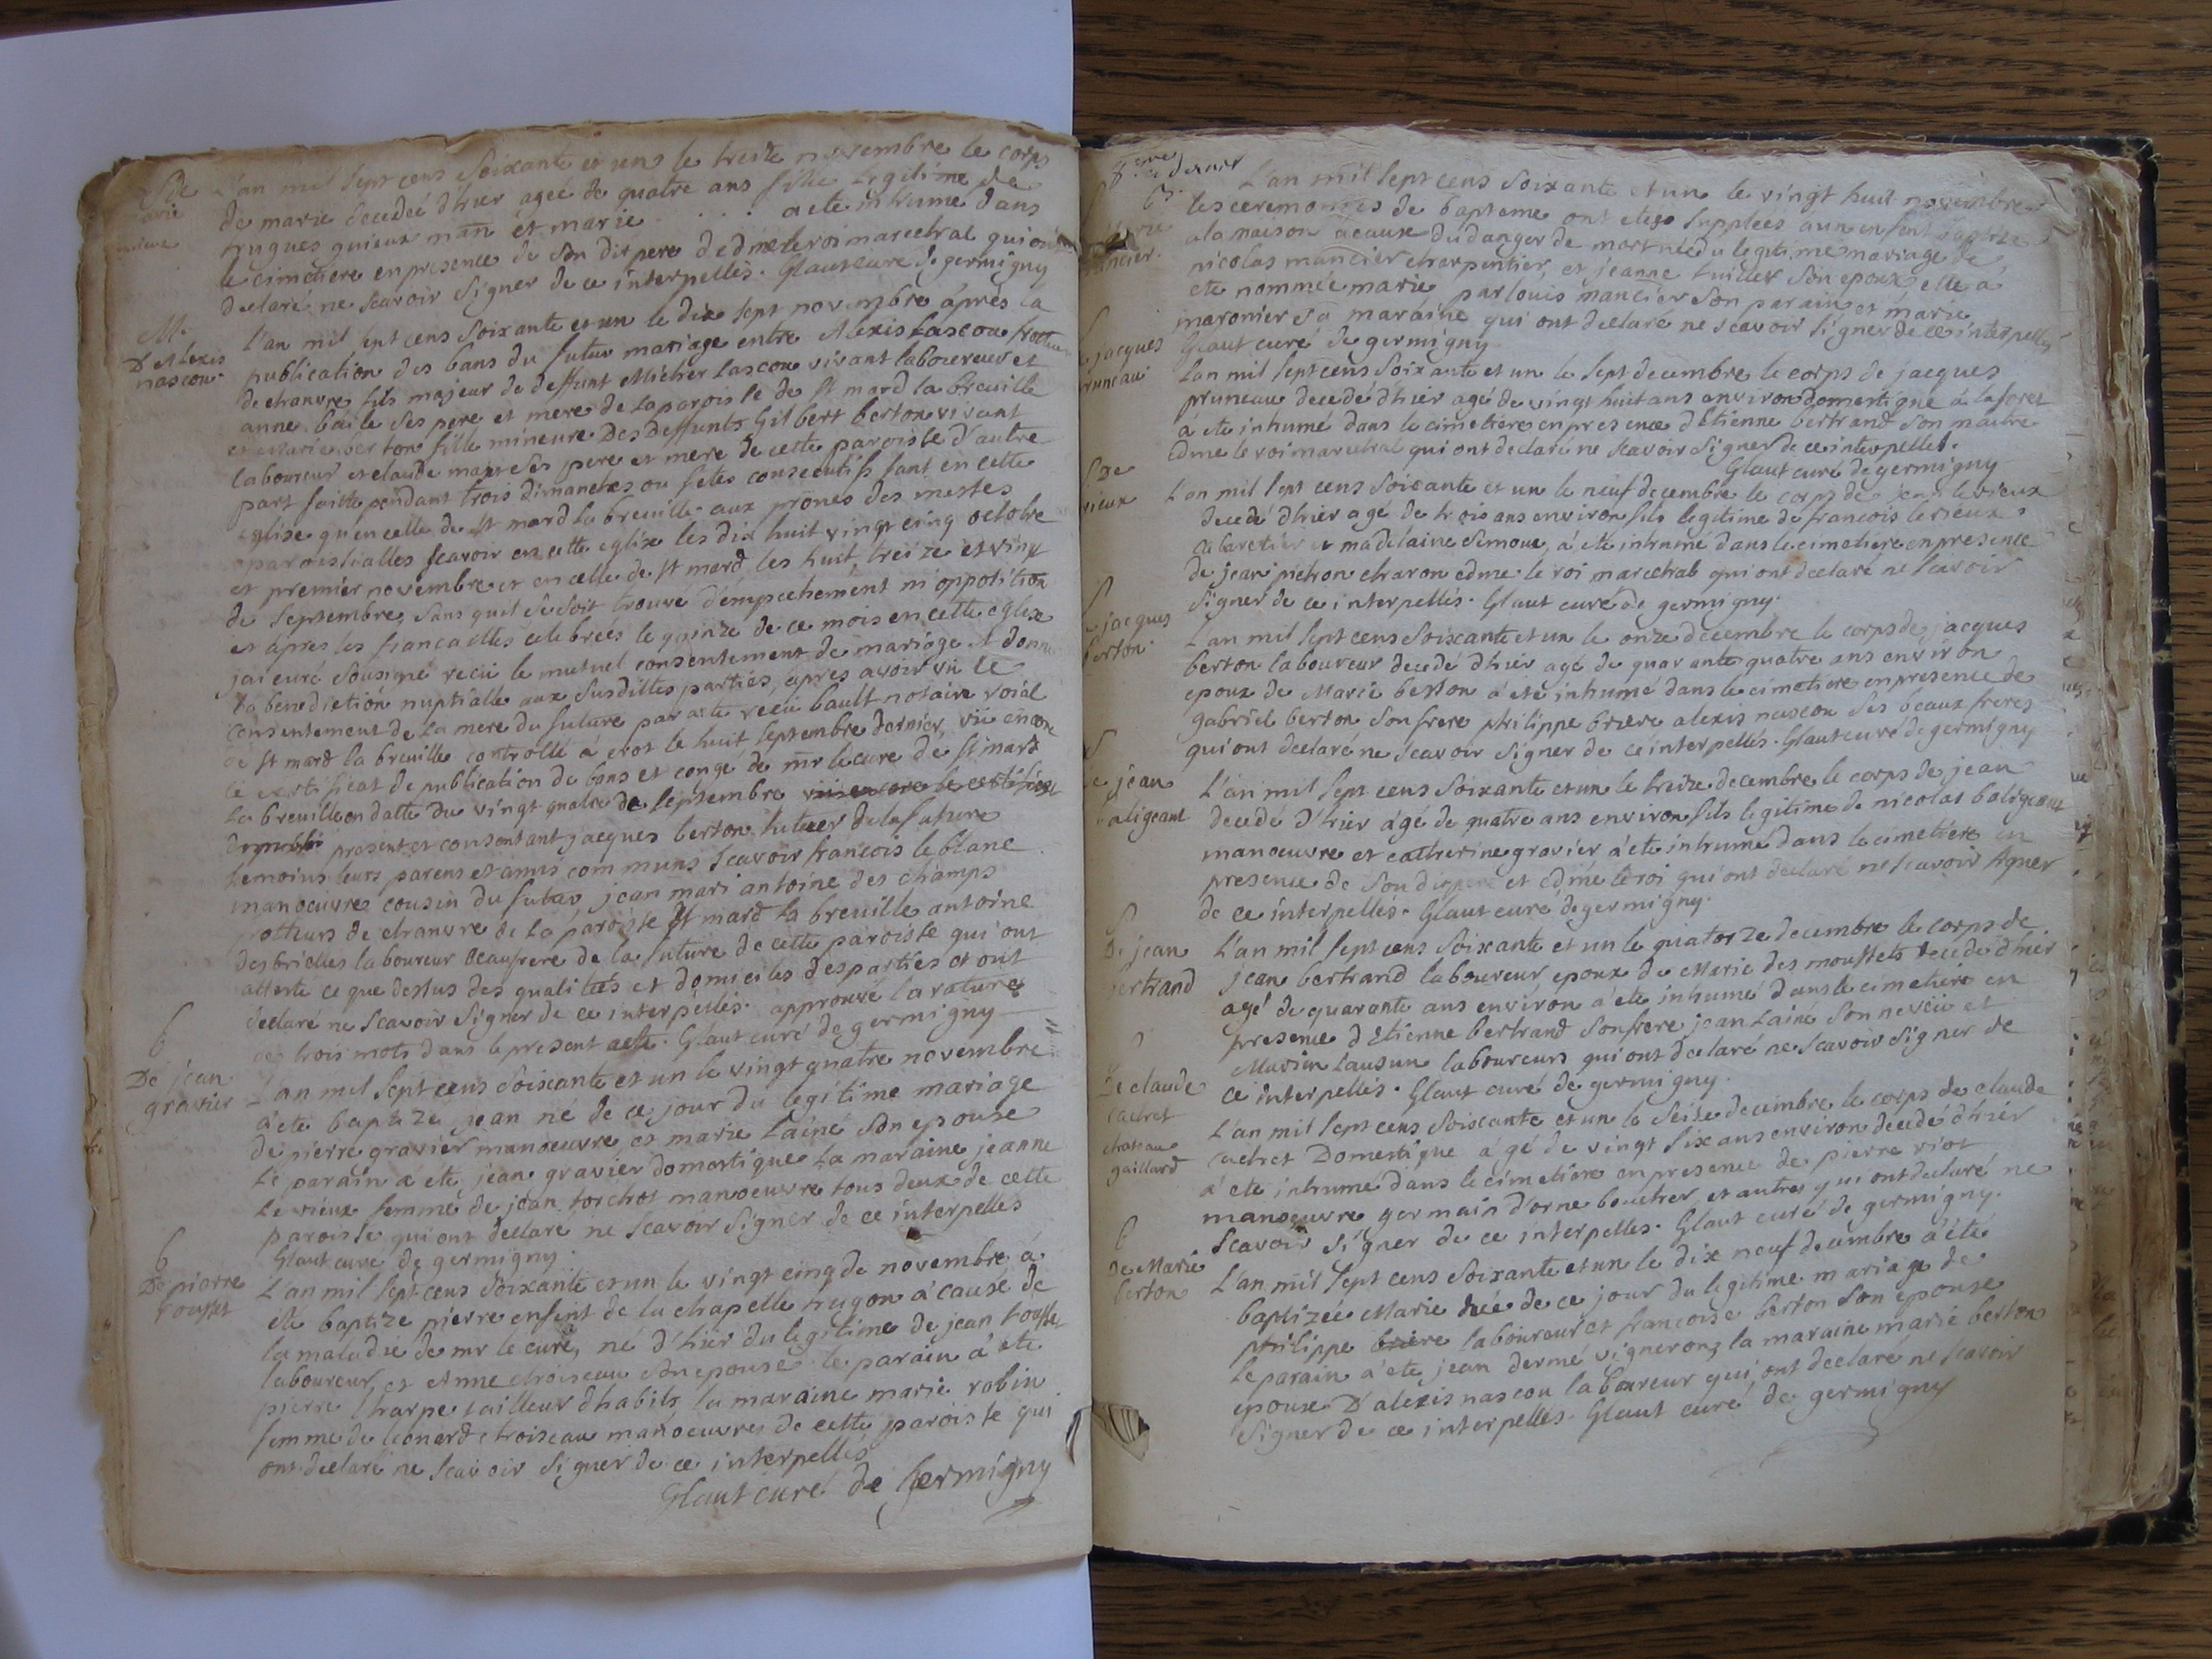 S De
marie
L'an mil sept cens soixante et uns le treize novembre le corps
de marie decedeé d'hier ageé de quatre ans fille legitime de
hugues et marie . . . . a ete inhumé dans
le cimetiere en presence de son dit pere d'edme le roi marechal qui ont
declaré ne scavoir signer de ce interpellés. Glaut curé de germigny
M.
D'Alexis
nascou.
L'an mil sept cens soixante et un le dix sept novembre áprés la
publication des bans du futur mariage entre Alexis Lascou frotteur
de chanvre fils majeur de deffunt Michier Lascou vivant laboureur et
anne baile ses pere et mere de la paroisse de st mard la breuille
et marie berton fille mineure des deffunts Gilbert berton vivant
laboureur et claude mars ses pere et mere de cette paroisse d'autre
part faitte pendant trois dimanches ou fetes consecutifs tant en cette
eglise qu'en celle de st mard la breuille aux prones des messes
paroissialles scavoir en cette eglise les dix huit vingt cinq octobre
et premier novembre et en celle de st mard les huit, treize et vingt
de septembre, sans quil se soit trouve d'empechement ni opposition
et áprés les fiancailles celebreés le quinze de ce mois en cette eglise
jai curé sousigné recu le mutuel consentement de mariage et donné
la benediction nuptialle aux susdittes parties, áprés avoir vu le
consentement de la mere du future par acte recu bault notaire roial
de st mard la breuille controllé á erot le huit septembre dernier, vü encore
le certificat de publication de bans et congé de mr le curé de st mard
la breuille en datte du vingt quatre de septembre vü encore le certificat
present et consentant jacques berton tuteur de la future
temoins leurs parens et amis communs scavoir francois le blanc
manoeuvre cousin du futur, jean mari antoine des champs
frotteurs de chanvre de la paroisse st mard la breuille antoine
desbrielles laboureur beaufrere de la future de cette paroisse qui ont
atteste ce que dessus des qualités et domiciles des parties et ont
declaré ne scavoir signer de ce interpellés. approuvé la rature
de trois mots dans le present acte. Glaut curé de germigny
b
De jean
gravier
L'an mil sept cens soixante et un le vingt quatre novembre
á été baptizé jean né de ce jour du legitime mariage
de pierre gravier manoeuvre et marie Lainé son epouse
le parain a eté jean gravier domestique la maraine jeanne
le vieux femme de jean torchot manoeuvre tous deux de cette
paroisse qui ont declare ne scavoir signer de ce interpelles
Glaut curé de germigny.
b
De pierre
tousset
L'an mil sept cens soixante et un le vingt cinq de novembre á
eté baptizé pierre enfent de la chapelle hugon á cause de
la maladie de mr le curé, né d'hier du legitime de jean tousset
laboureur et Anne choiseau son epouse le parain á eté
pierre l'harpe tailleur d'habits la maraine marie robin
femme de leonard choiseau manoeuvres de cette paroisse qui
ont declaré ne scavoir signer de ce interpellés
Glaut curé de germigny
8eme et dernier
b.
mancier.
L'an mil sept cens soixante et un le vingt huit novembre
les ceremonies de bapteme ont eteés suppleés a un enfent baptizé
a la maison á cause du danger de mort neé du legitime mariage de
nicolas mancier charpentier, et jeanne tuiller son epoux, elle a
ete nommeé marie, par louis mancier son parain et marie
maronier sa maraine qui ont declaré ne scavoir signer de ce interpellés
Glaut curé de germigny
S
de jacques
pruneau
L'an mil sept cens soixante et un le sept decembre le corps de jacques
pruneau decedé d'hier agé de vingt huit ans environ domestique á la foret
á eté inhumé dans le cimetiere en presence d'Etienne bertrand son maitre
edme le roi marechal qui ont declaré ne scavoir signer de ce interpellés.
Glaut curé de germigny
S De
vieux
L'an mil sept cens soixante et un le neuf decembre le corps de jean le vieux
decedé d'hier agé de trois ans environ fils legitime de francois le vieux
cabaretier et madelaine semoue, á eté inhumé dans le cimetiere en presence
de jean pichon charon edme le roi marechal qui ont declaré ne scavoir
signer de ce interpellés. Glaut curé de germigny.
S
de jacques
berton.
L'an mil sept cens soixante et un le onze decembre le corps de jacques
berton laboureur decedé d'hier agé de quarante quatre ans environ
epoux de Marie berton á eté inhumé dans le cimetiere en presence de
gabriel berton son frere philippe briere alexis nascou ses beaux freres
qui ont declaré ne scavoir signer de ce interpellés. Glaut curé de germigny
S
de jean
baligeant
L'an mil sept cens soixante et un le treize decembre le corps de jean
decedé d'hier ágé de quatre ans environ fils legitime de nicolas baligeant
manoeuvre et catherine gravier á eté inhumé dans le cimetiere en
presence de son dit pere et edmé le roi qui ont declaré ne scavoir signer
de ce interpellés. Glaut curé de germigny.
S
De jean
bertrand
L'an mil sept cens soixante et un le quatorze decembre le corps de
jean bertrand laboureur epoux de Marie des moussets decedé d'hier
agé de quarante ans environ á eté inhumé dans le cimetiere en
presence d'Etienne bertrand son frere jean Lainé son neveu et
Marien Lausun laboureurs qui ont declaré ne scavoir signer de
ce interpellés. Glaut curé de germigny.
S
De claude
cachet
chateau
gaillard
L'an mil sept cens soixante et un le seize decembre le corps de claude
cachet Domestique ágé de vingt six ans environ decedé d'hier
á eté inhumé dans le cimetiere en presence de pierre riot
manoeuvre germain d'orne boucher et autres qui ont declaré ne
scavoir signer de ce interpelles. Glaut curé de germigny.
b
De Marie
berton
L'an mil sept cens soixante et un le dix neuf decembre á été
baptizeé Marie neé de ce jour du legitime mariage de
philippe briere laboureur et francoise berton son epouse
le parain á eté jean dermé vigneron, la maraine marie berton
epouse D'alexis nascou laboureur qui ont declaré ne scavoir
signer de ce interpellés. Glaut curé de germigny